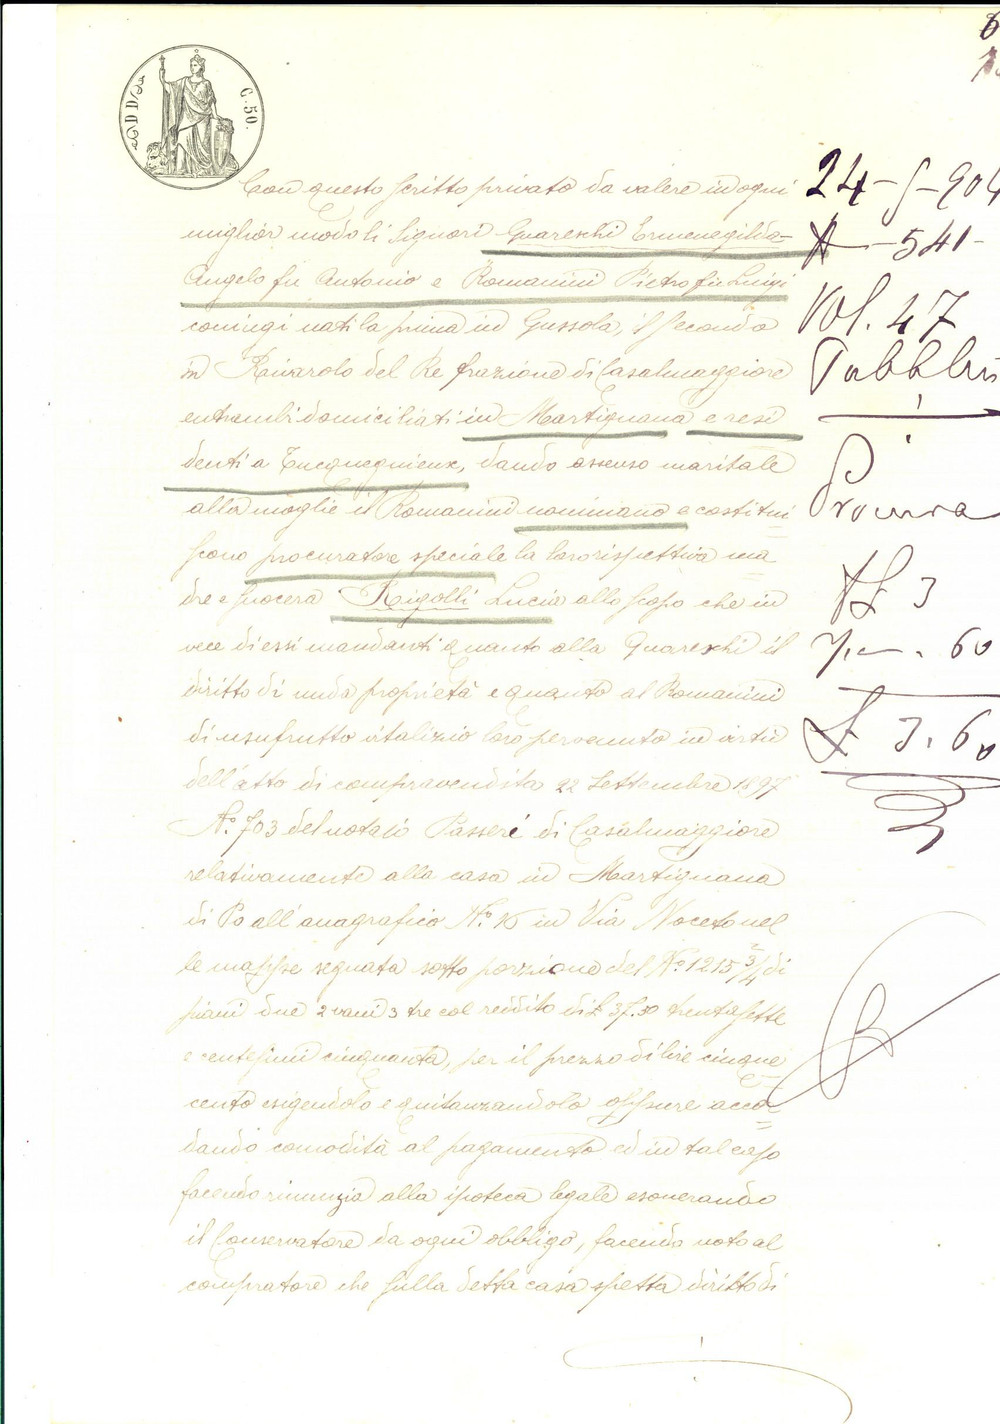 C. 50.
Con questo scritto privato da valere in ogni
miglior modo li Signori Guareschi Ermenegilda
Angela fu Antonio e Romanini Pietro fu Luigi
coniugi nati la prima in Gussola, il secondo
in Rivarolo del Re frazione di Casalmaggiore
entrambi domiciliati in Martignana e resi
denti a Tucquegnieux, dando assenso maritale
alla moglie il Romanini nominano e costitui
scono procuratore speciale la loro rispettiva ma
dre e suocera Rigolli Lucia allo scopo che in
vece di essi mandanti quanto alla Guareschi il
diritto di nuda proprietà e quanto al Romanini
di usufrutto vitalizio loro pervenuto in virtù
dell'atto di compravendita 22 Settembre 1897
No. 703 del notaio Passeri di Casalmaggiore
relativamente alla casa in Martignana
di Po all'anagrafico No. 16 in Via Noceto nel
le mappe segnata sotto porzione del No. 1215 3/4 di
piani due 2 vani 3 tre col reddito di £ 37.50 trentasette
e centesimi cinquanta, per il prezzo di lire cinque
cento esigendolo e quitanzandolo oppure accor
dando comodità al pagamento ed in tal caso
facendo rinunzia alla ipoteca legale esonerando
il Conservatore da ogni obbligo, facendo noto al
compratore che sulla detta casa spetta diritto di
24-5-904
N - 541 -
Vol. 47
Pubblici
Procura
£ 3
60
£ 3.60